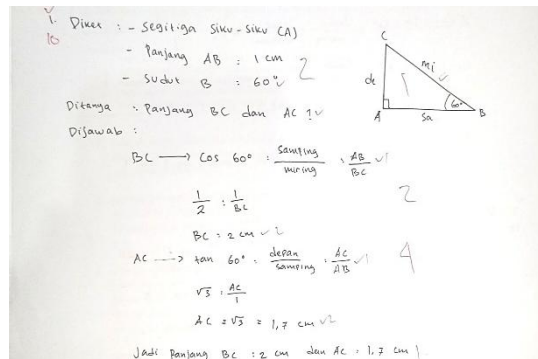 1. Diket : - Segitiga Siku-Siku (A)
10
- Panjang AB : 1 cm
2
- Sudut B : 60°
Ditanya : Panjang BC dan AC ?
Dijawab :
C
de
mi
1
A
sa
60°
B
BC → Cos 60° : samping/miring : AB/BC 1
1/2 : 1/BC
2
BC = 2 cm 2
AC → tan 60° : depan/samping : AC/AB 1
4
√3 : AC/1
AC = √3 = 1,7 cm 2
Jadi Panjang BC : 2 cm dan AC = 1,7 cm 1